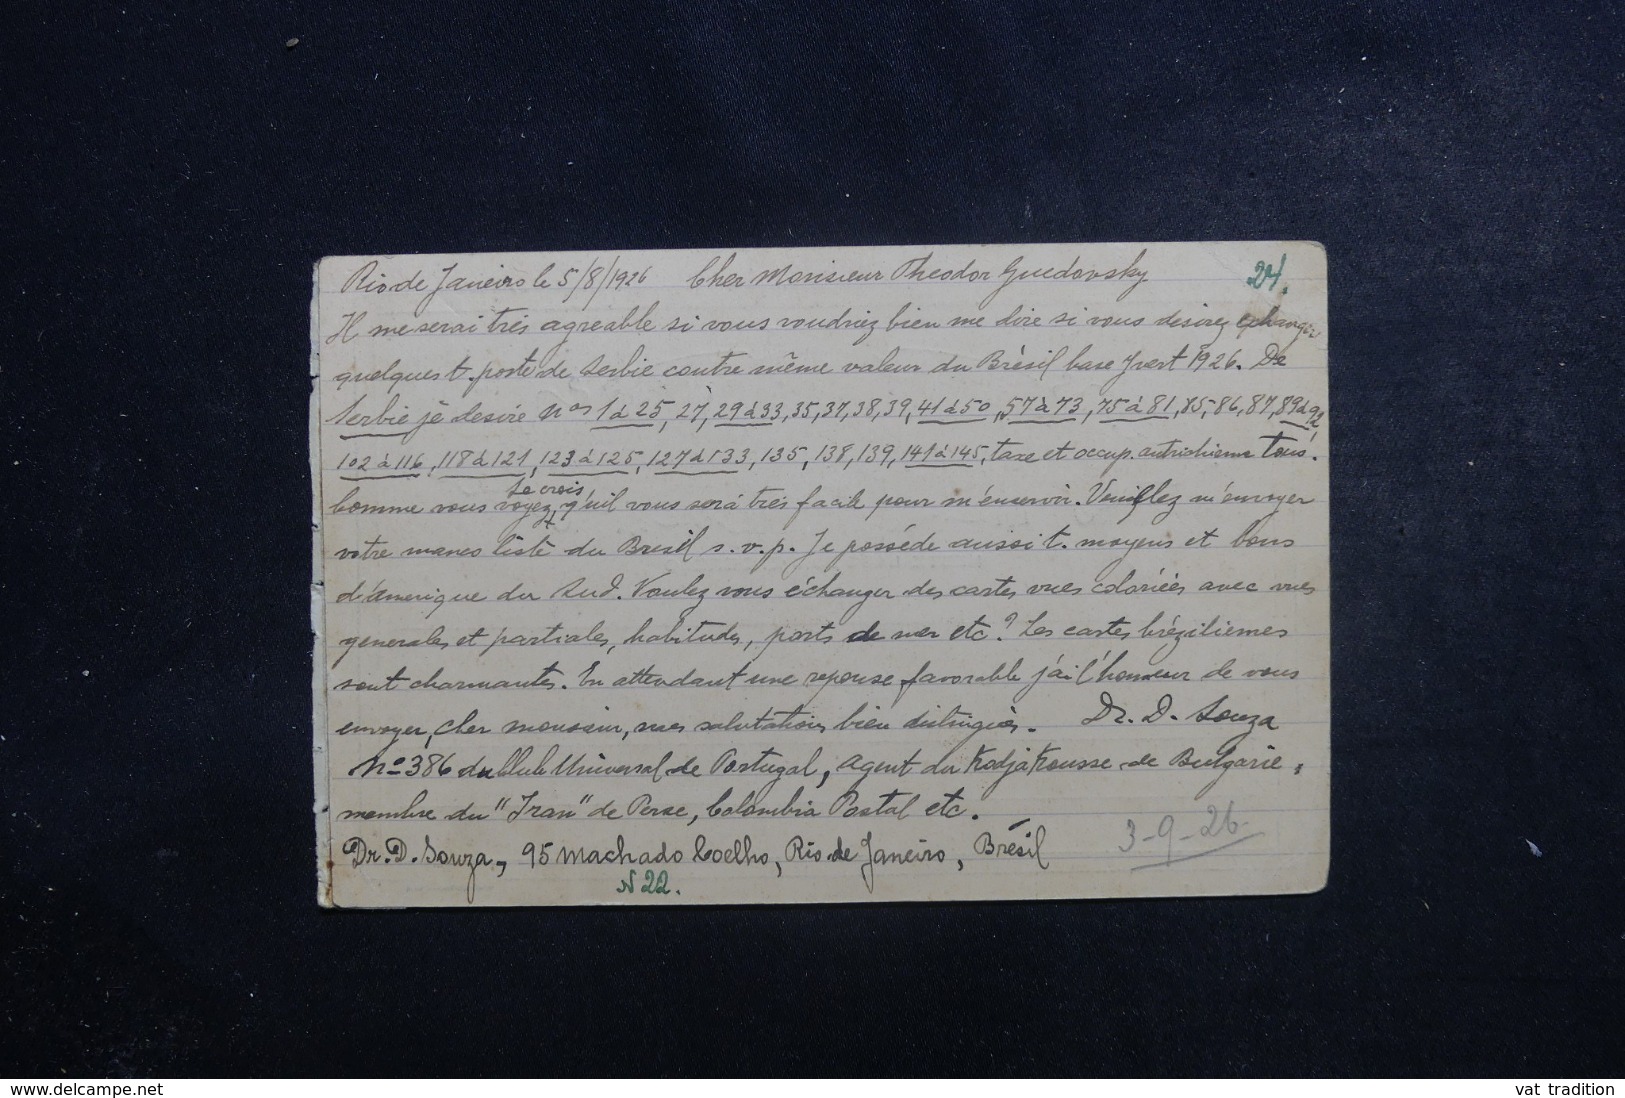 Rio de Janeiro le 5/8/1926 Cher Monsieur Theodor Guedovsky 24.
Il me serai trés agreable si vous voudriez bien me dire si vous desirez echanger
quelques t. poste de Serbie contre même valeur du Brésil base Yvert 1926. De
Serbie je desire Nos 1 à 25, 27, 29 à 33, 35, 37, 38, 39, 41 à 50, 57 à 73, 75 à 81, 85, 86, 87, 89 à 92
102 à 116, 118 à 121, 123 à 125, 127 à 133, 135, 138, 139, 141 à 145, taxe et occup. autrichienne tous.
Je crois
Comme vous voyez, q'uil vous será trés facile pour m'enservir. Veuillez m'envoyer
votre manco liste du Bresil s.v.p. Je posséde aussi t. moyens et bons
d'amerique du Sud. Voulez vous échanger des cartes vues coloriées avec vues
generales et partiales, habitudes, ports de mer etc? Les cartes bréziliennes
sont charmantes. En attendant une reponse favorable j'ai l'honneur de vous
envoyer, cher monsieur, mes salutations bien distingiés. Dr. D. Souza
No 386 du Club Universal de Portugal, agent du Kodja Kousse de Bulgarie,
membre du "Iran" de Perse, Colombia Postal etc.
Dr. D. Souza, 95 Machado Coelho, Rio de Janeiro, Brésil 3-9-26
N 22.
www.delcampe.net vat tradition